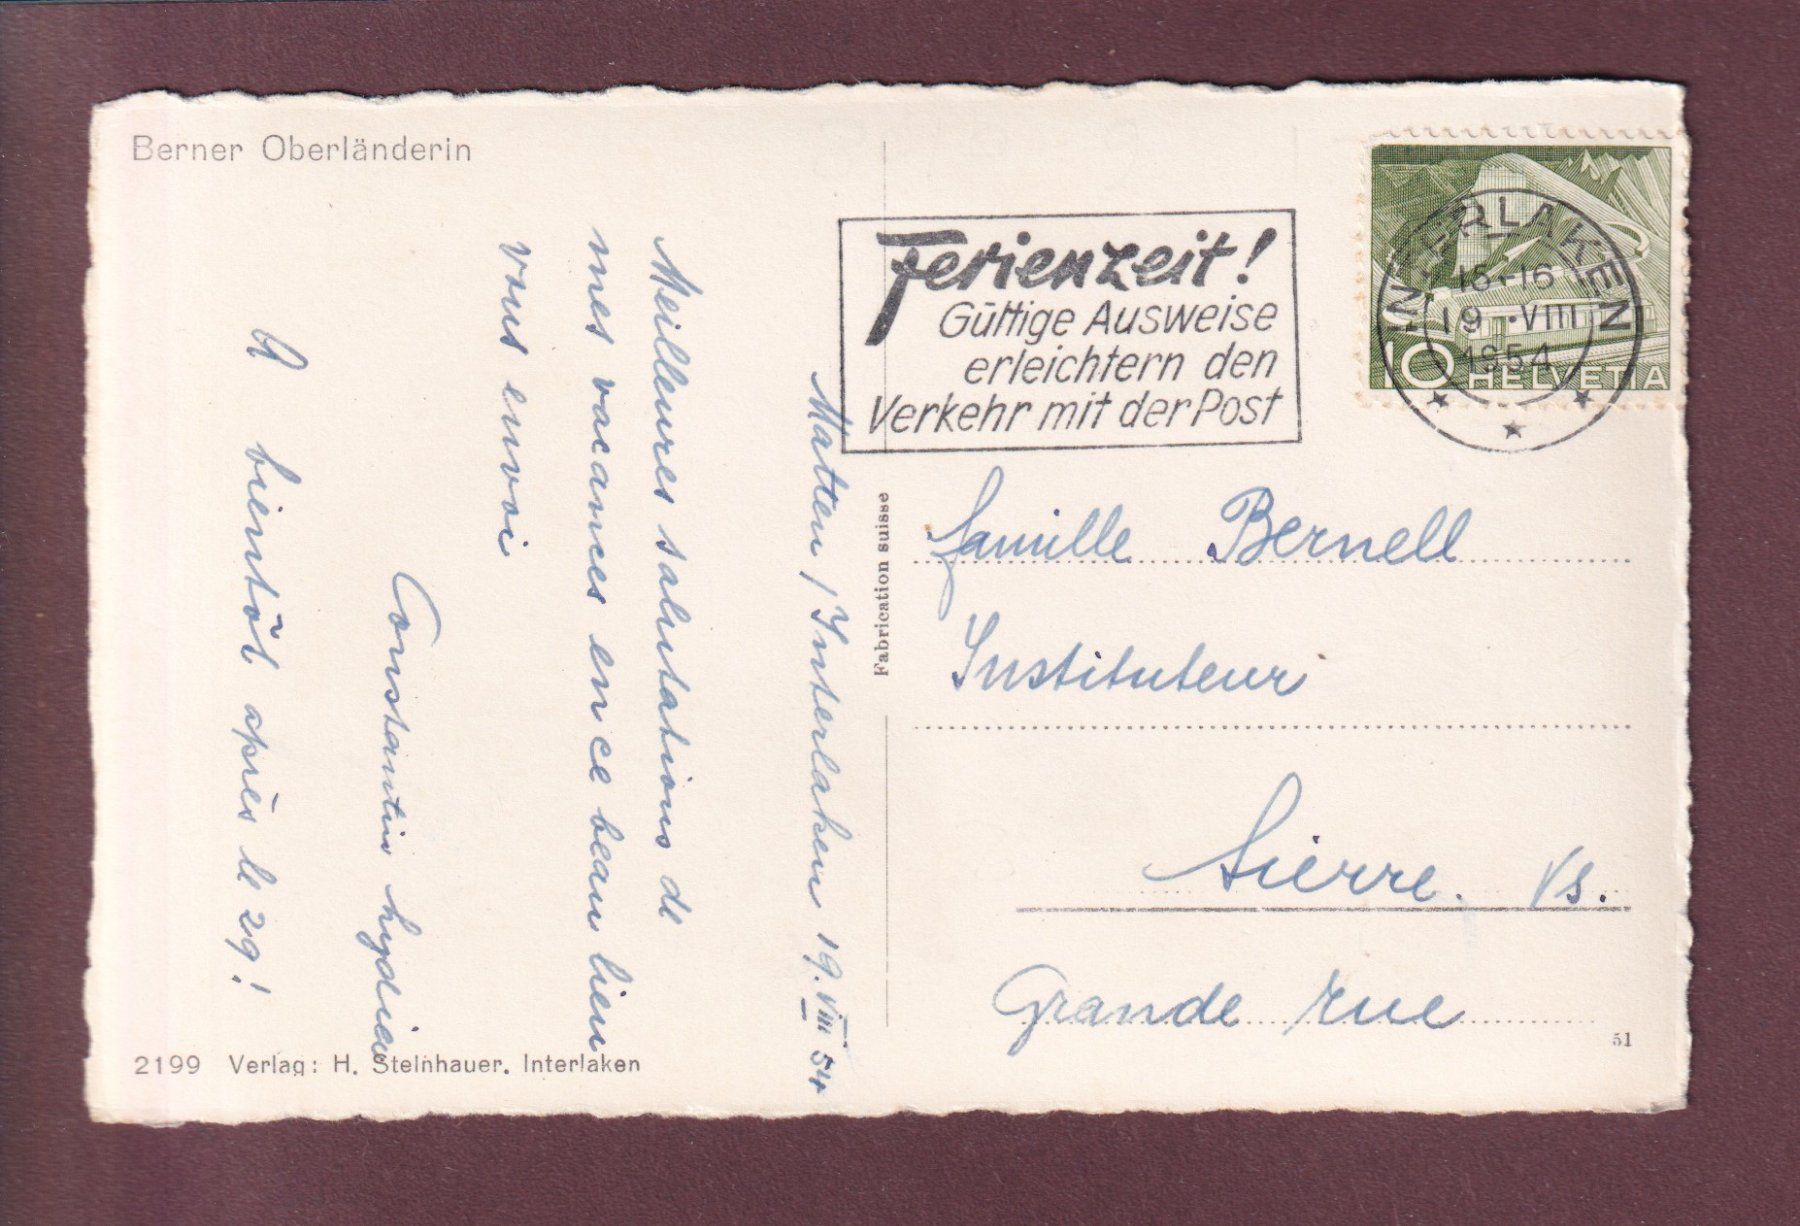 Berner Oberländerin
Matten / Interlaken 19.VIII 54
Meilleures salutations de
mes vacances en ce beau lieu
vous envoi
Constantin
A bientôt après le 29!
2199 Verlag: H. Steinhauer. Interlaken
Fabrication suisse
Ferienzeit!
Gültige Ausweise
erleichtern den
Verkehr mit der Post
INTERLAKEN
15-16
19.VIII
1954
10 HELVETIA
famille Bernell
Instituteur
Sierre. Vs.
Grande rue
51